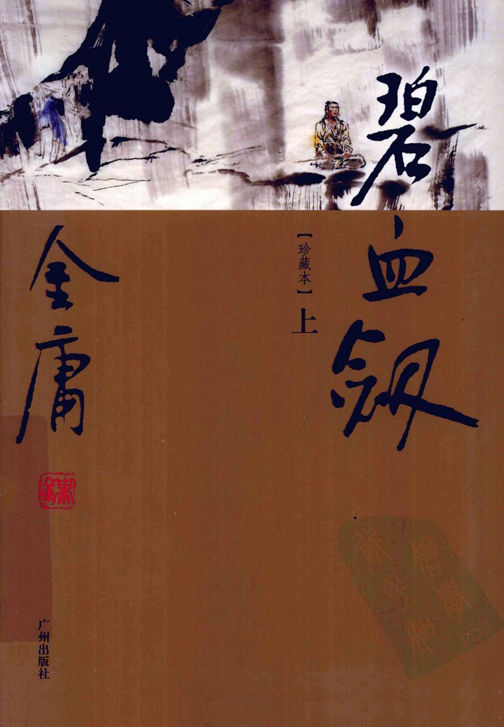 碧血劔
【珍藏本】
上
金庸
广州出版社